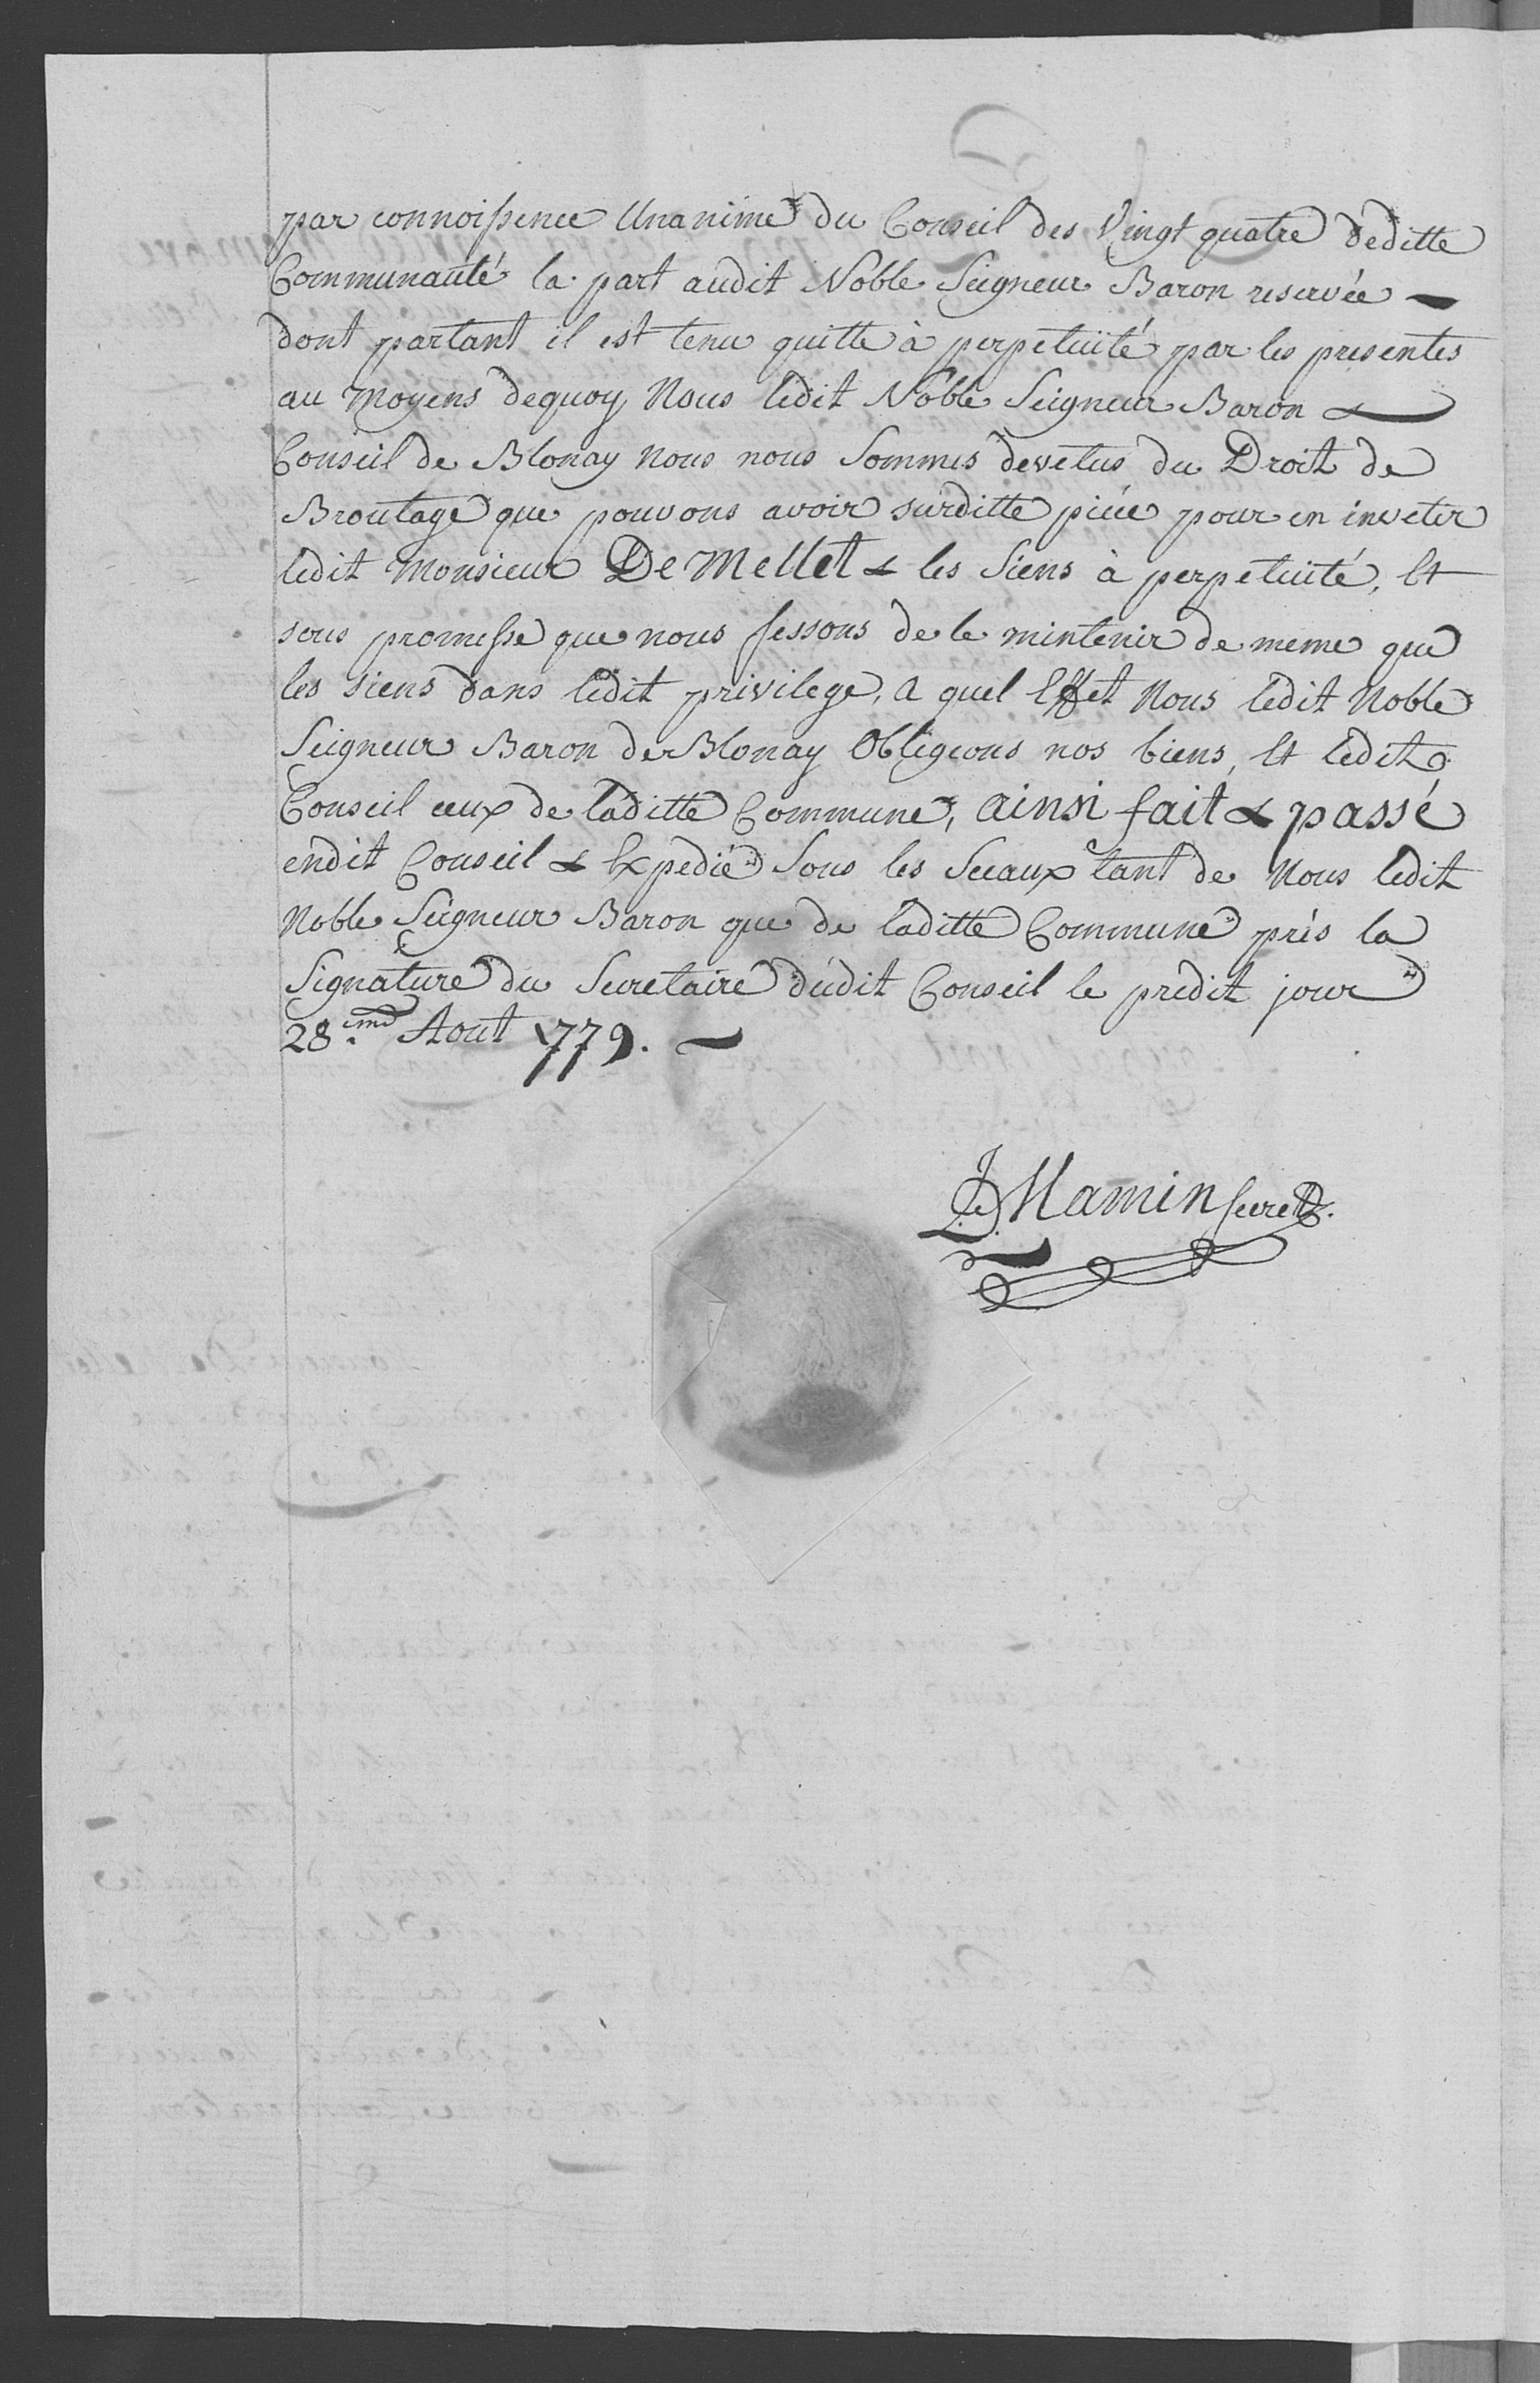 par connoissence Unanime du Conseil des Vingt quatre deditte
Communauté la part audit Noble Seigneur Baron reservée
dont partant il est tenu quitte à perpetuité par les presentes
au Moyens dequoy Nous ledit Noble Seigneur Baron &
Conseil de Blonay Nous nous Sommes devetus du Droit de
Broutage que pouvons avoir surditte piéce pour en inveter
ledit Monsieur De Mellet & les Siens à perpetuité, Et
sous promesse que nous fessons de le mintenir de meme que
les siens dans ledit privilege, a quel Effet Nous ledit Noble
Seigneur Baron de Blonay Obligeons nos biens, Et ledit
Conseil ceux de laditte Commune, ainsi fait & passé
endit Conseil & Expedié Sous les Sceaux tant de Nous ledit
Noble Seigneur Baron que de laditte Commune près la
Signature du Secretaire dudit Conseil le predit jour
28.eme Aout 1779.
Mamin secret.